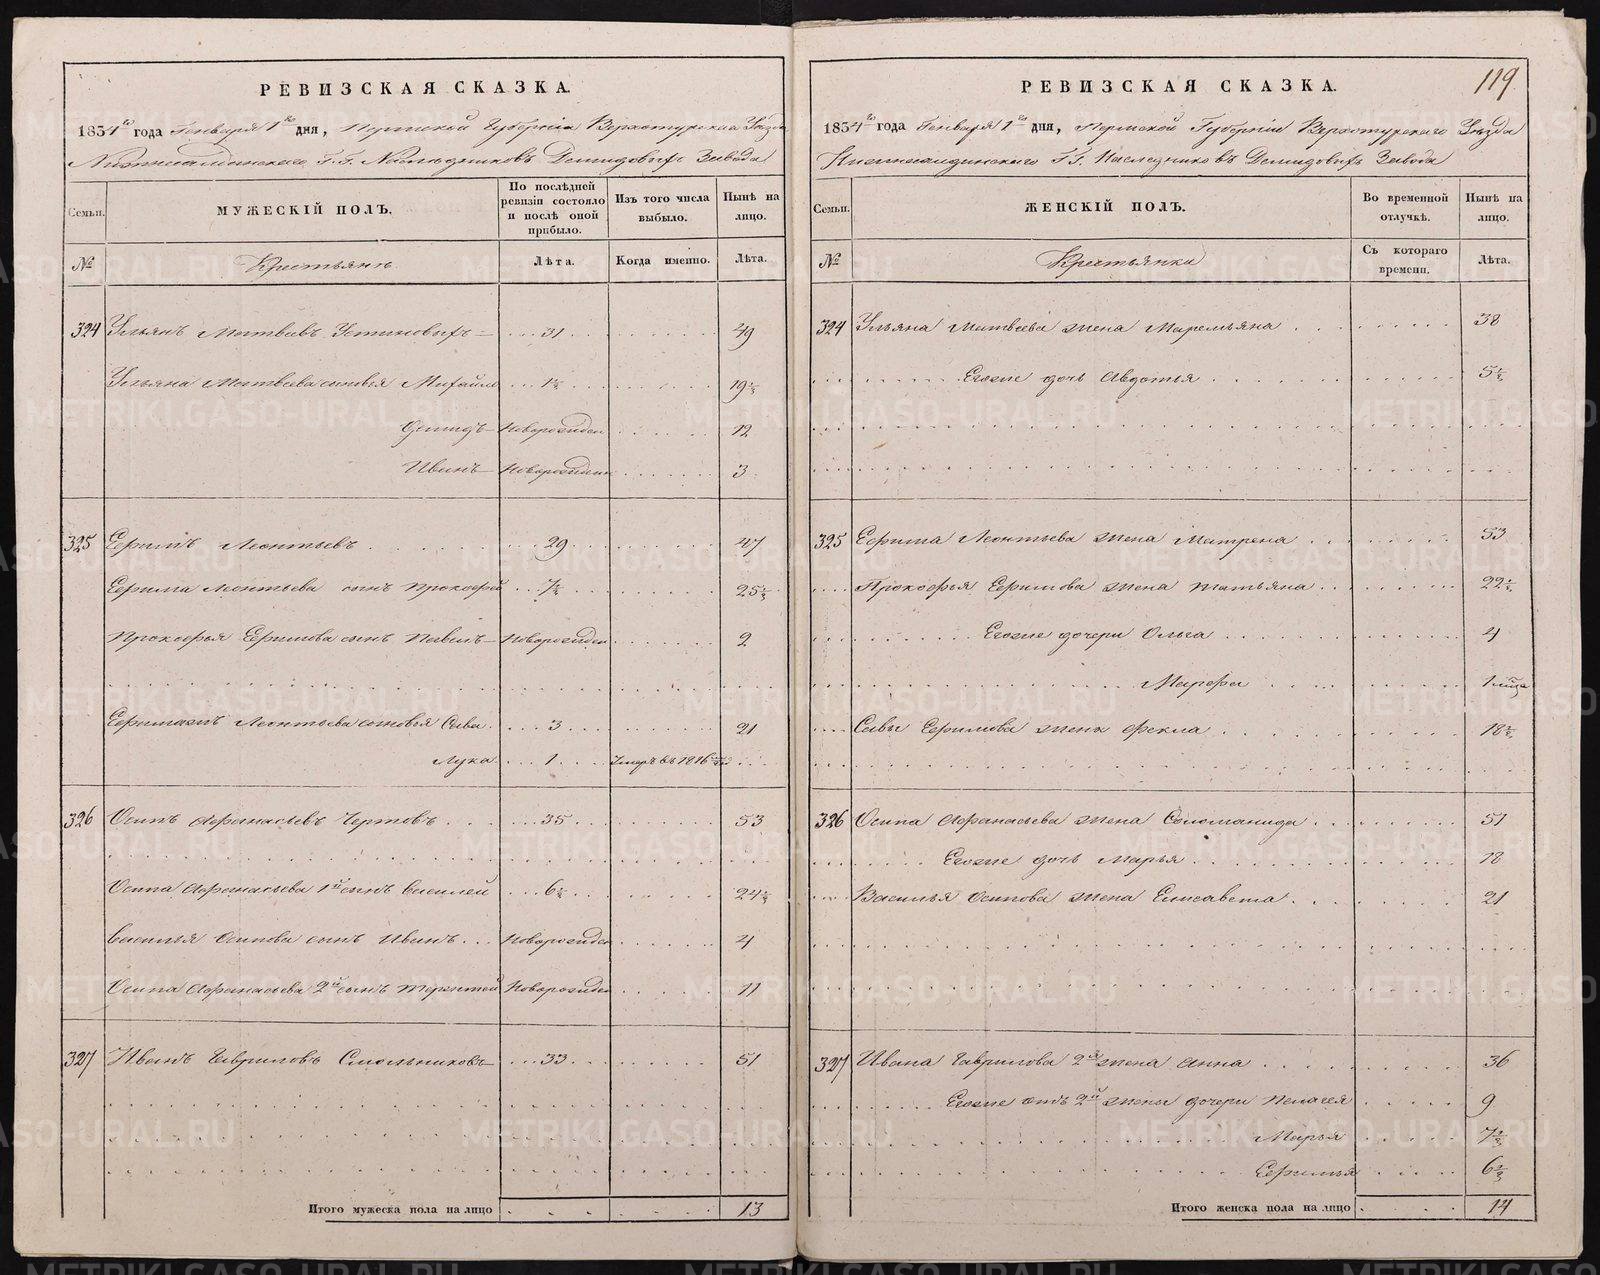 РЕВИЗСКАЯ СКАЗКА.
1834го года Генваря 1го дня, Пермской Губерніи Верхотурскаго Уѣзда
Нижнесалдинскаго Г.Г. Наслѣдниковъ Демидовыхъ Завода
Семьи.
МУЖЕСКІЙ ПОЛЪ.
По послѣдней ревизіи состояло и послѣ оной прибыло.
Изъ того числа выбыло.
Нынѣ на лицо.
№
Крестьянъ
Лѣта.
Когда именно.
Лѣта.
324 Ульянъ Матвеевъ Устиновыхъ 31 49
Ульяна Матвеева сыновья Михайло 1½ 19½
Демидъ Новорожден 12
Иванъ Новорожден 3
325 Ефимъ Леонтьевъ 29 47
Ефима Леонтьева сынъ Прокофей 7½ 25½
Прокофья Ефимова сынъ Павелъ Новорожден 2
Ефима Леонтьева сыновья Сава 3 21
Лука 1 Умеръ въ 1816
326 Осипъ Афанасьевъ Чертовъ 35 53
Осипа Афанасьева 1й сынъ Василей 6½ 24½
Василья Осипова сынъ Иванъ Новорожден 4
Осипа Афанасьева 2й сынъ Терентей Новорожден 11
327 Иванъ Гавриловъ Смольниковъ 33 51
Итого мужеска пола на лицо 13
119.
РЕВИЗСКАЯ СКАЗКА.
1834го года Генваря 1го дня, Пермской Губерніи Верхотурскаго Уѣзда
Нижнесалдинскаго Г.Г. Наследниковъ Демидовыхъ Завода
Семьи.
ЖЕНСКІЙ ПОЛЪ.
Во временной отлучкѣ.
Нынѣ на лицо.
№
Крестьянки
Съ котораго времени.
Лѣта.
324 Ульяна Матвеева жена Маремьяна 38
Егоже дочь Авдотья 5½
325 Ефима Леонтьева жена Матрена 53
Прокофья Ефимова жена Татьяна 22½
Егоже дочери Ольга 4
Марфа 1
Савы Ефимова жена Фекла 18½
326 Осипа Афанасьева жена Соломанида 51
Егоже дочь Марья 18
Василья Осипова жена Елисавета 21
327 Ивана Гаврилова 2я жена Анна 36
Егоже отъ 2й жены дочери Пелагея 9
Марья 7½
Ефимья 6½
Итого женска пола на лицо 14
METRIKI.GASO-URAL.RU